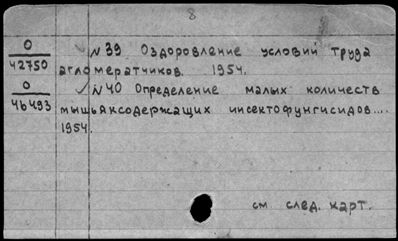 8
О
42750
№ 39. Оздоровление условий труда
агломератчиков. 1954.
О
46493
№ 40 Определение малых количеств
мышьяксодержащих инсектофунгисидов....
1954.
см след. карт.